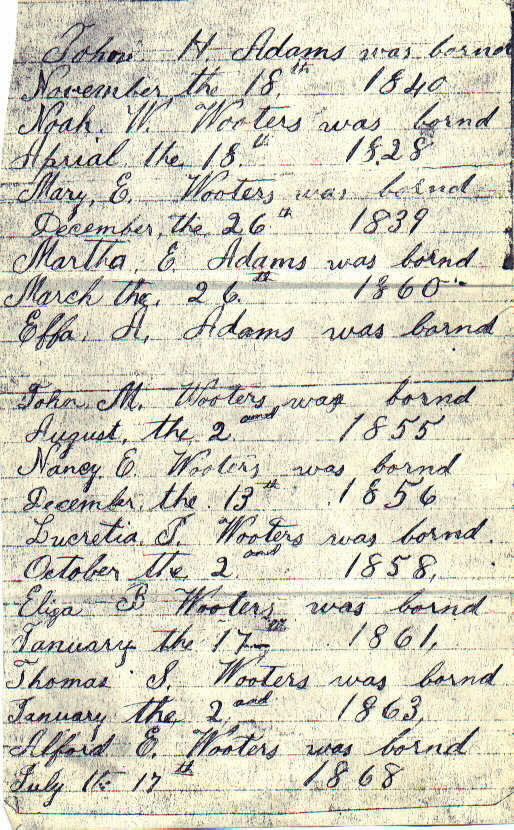 John H. Adams was bornd
November the 18th 1840
Noah. W. Wooters was bornd
Aprial the 18th 1828
Mary, E. Wooters was bornd
December, the 26th 1839
Martha, E. Adams was bornd
March the, 26th 1860
Effa, A, Adams was bornd
John, M. Wooters, was bornd
August, the 2and 1855
Nancy E. Wooters was bornd
December, the 13th 1856
Lucretia. P. Wooters was bornd.
October the 2and 1858,
Eliza B Wooters was bornd
January the 17th 1861,
Thomas S. Wooters was bornd
January the 2,and 1863,
Alford E. Wooters was bornd
July the 17th 1868